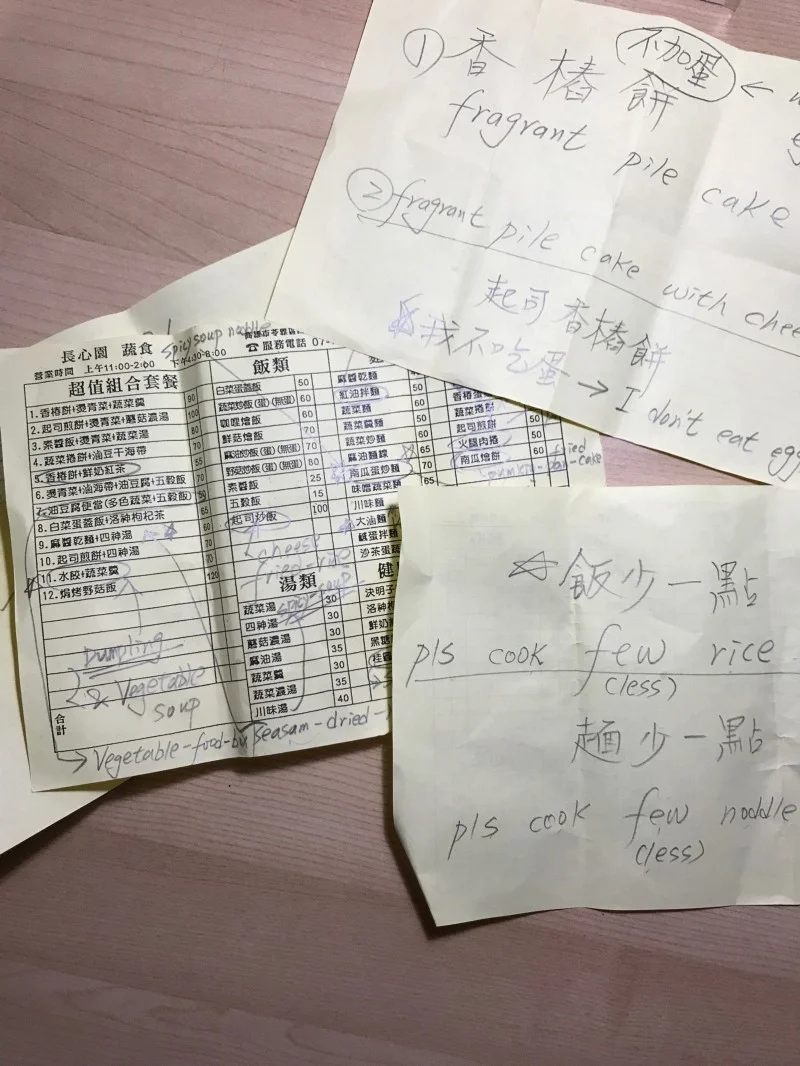 ① 香椿餅 不加蛋 ←
fragrant pile cake
② fragrant pile cake with chee
起司香椿餅
我不吃蛋 → I don't eat egg
長心園 蔬食
spicy soup noddle
營業時間 上午11:00-2:00 下午4:30-8:00
☎服務電話 07-
超值組合套餐
1.香椿餅+燙青菜+蔬菜羹 90
2.起司煎餅+燙青菜+蘑菇濃湯 100
3.素醬飯+燙青菜+蔬菜湯 80
4.蔬菜捲餅+滷豆干海帶 70
5.香椿餅+鮮奶紅茶 55
6.燙青菜+滷海帶+油豆腐+五穀飯
7.油豆腐便當(多色蔬菜+五穀飯)
8.白菜蛋蓋飯+洛神枸杞茶 65
9.麻醬乾麵+四神湯 60
10.起司煎餅+四神湯 70
11.水餃+蔬菜羹
12.焗烤野菇飯 120
合計
dumpling
& Vegetable
soup
飯類
白菜蛋蓋飯 50
蔬菜炒飯(蛋)(無蛋) 60
咖哩燴飯
鮮菇燴飯
麻油炒飯(蛋)(無蛋)
野菇炒飯(蛋)(無蛋) 80
素醬飯 25
五穀飯 15
起司炒飯 100
cheese
fried-rice
湯類
蔬菜湯 30
四神湯 30
蘑菇濃湯 30
麻油湯 35
蔬菜羹 30
蔬菜濃湯 35
川味湯 40
麻醬乾麵
紅油拌麵
蔬菜麵
蔬菜羹麵
蔬菜炒麵
麻油麵線
南瓜蛋炒麵
味噌蔬菜麵
川味麵
大滷麵
鹹蛋拌麵
沙茶蛋蔬
香椿蛋
蔬菜捲餅
火腿肉捲 50
南瓜燴餅
fried
pan-cake
健
決明子
洛神枸
鮮奶
黑糖
桂圓
Vegetable-food-bu Beasam-dried-
飯少一點
pls cook few rice
(less)
麵少一點
pls cook few noddle
(less)